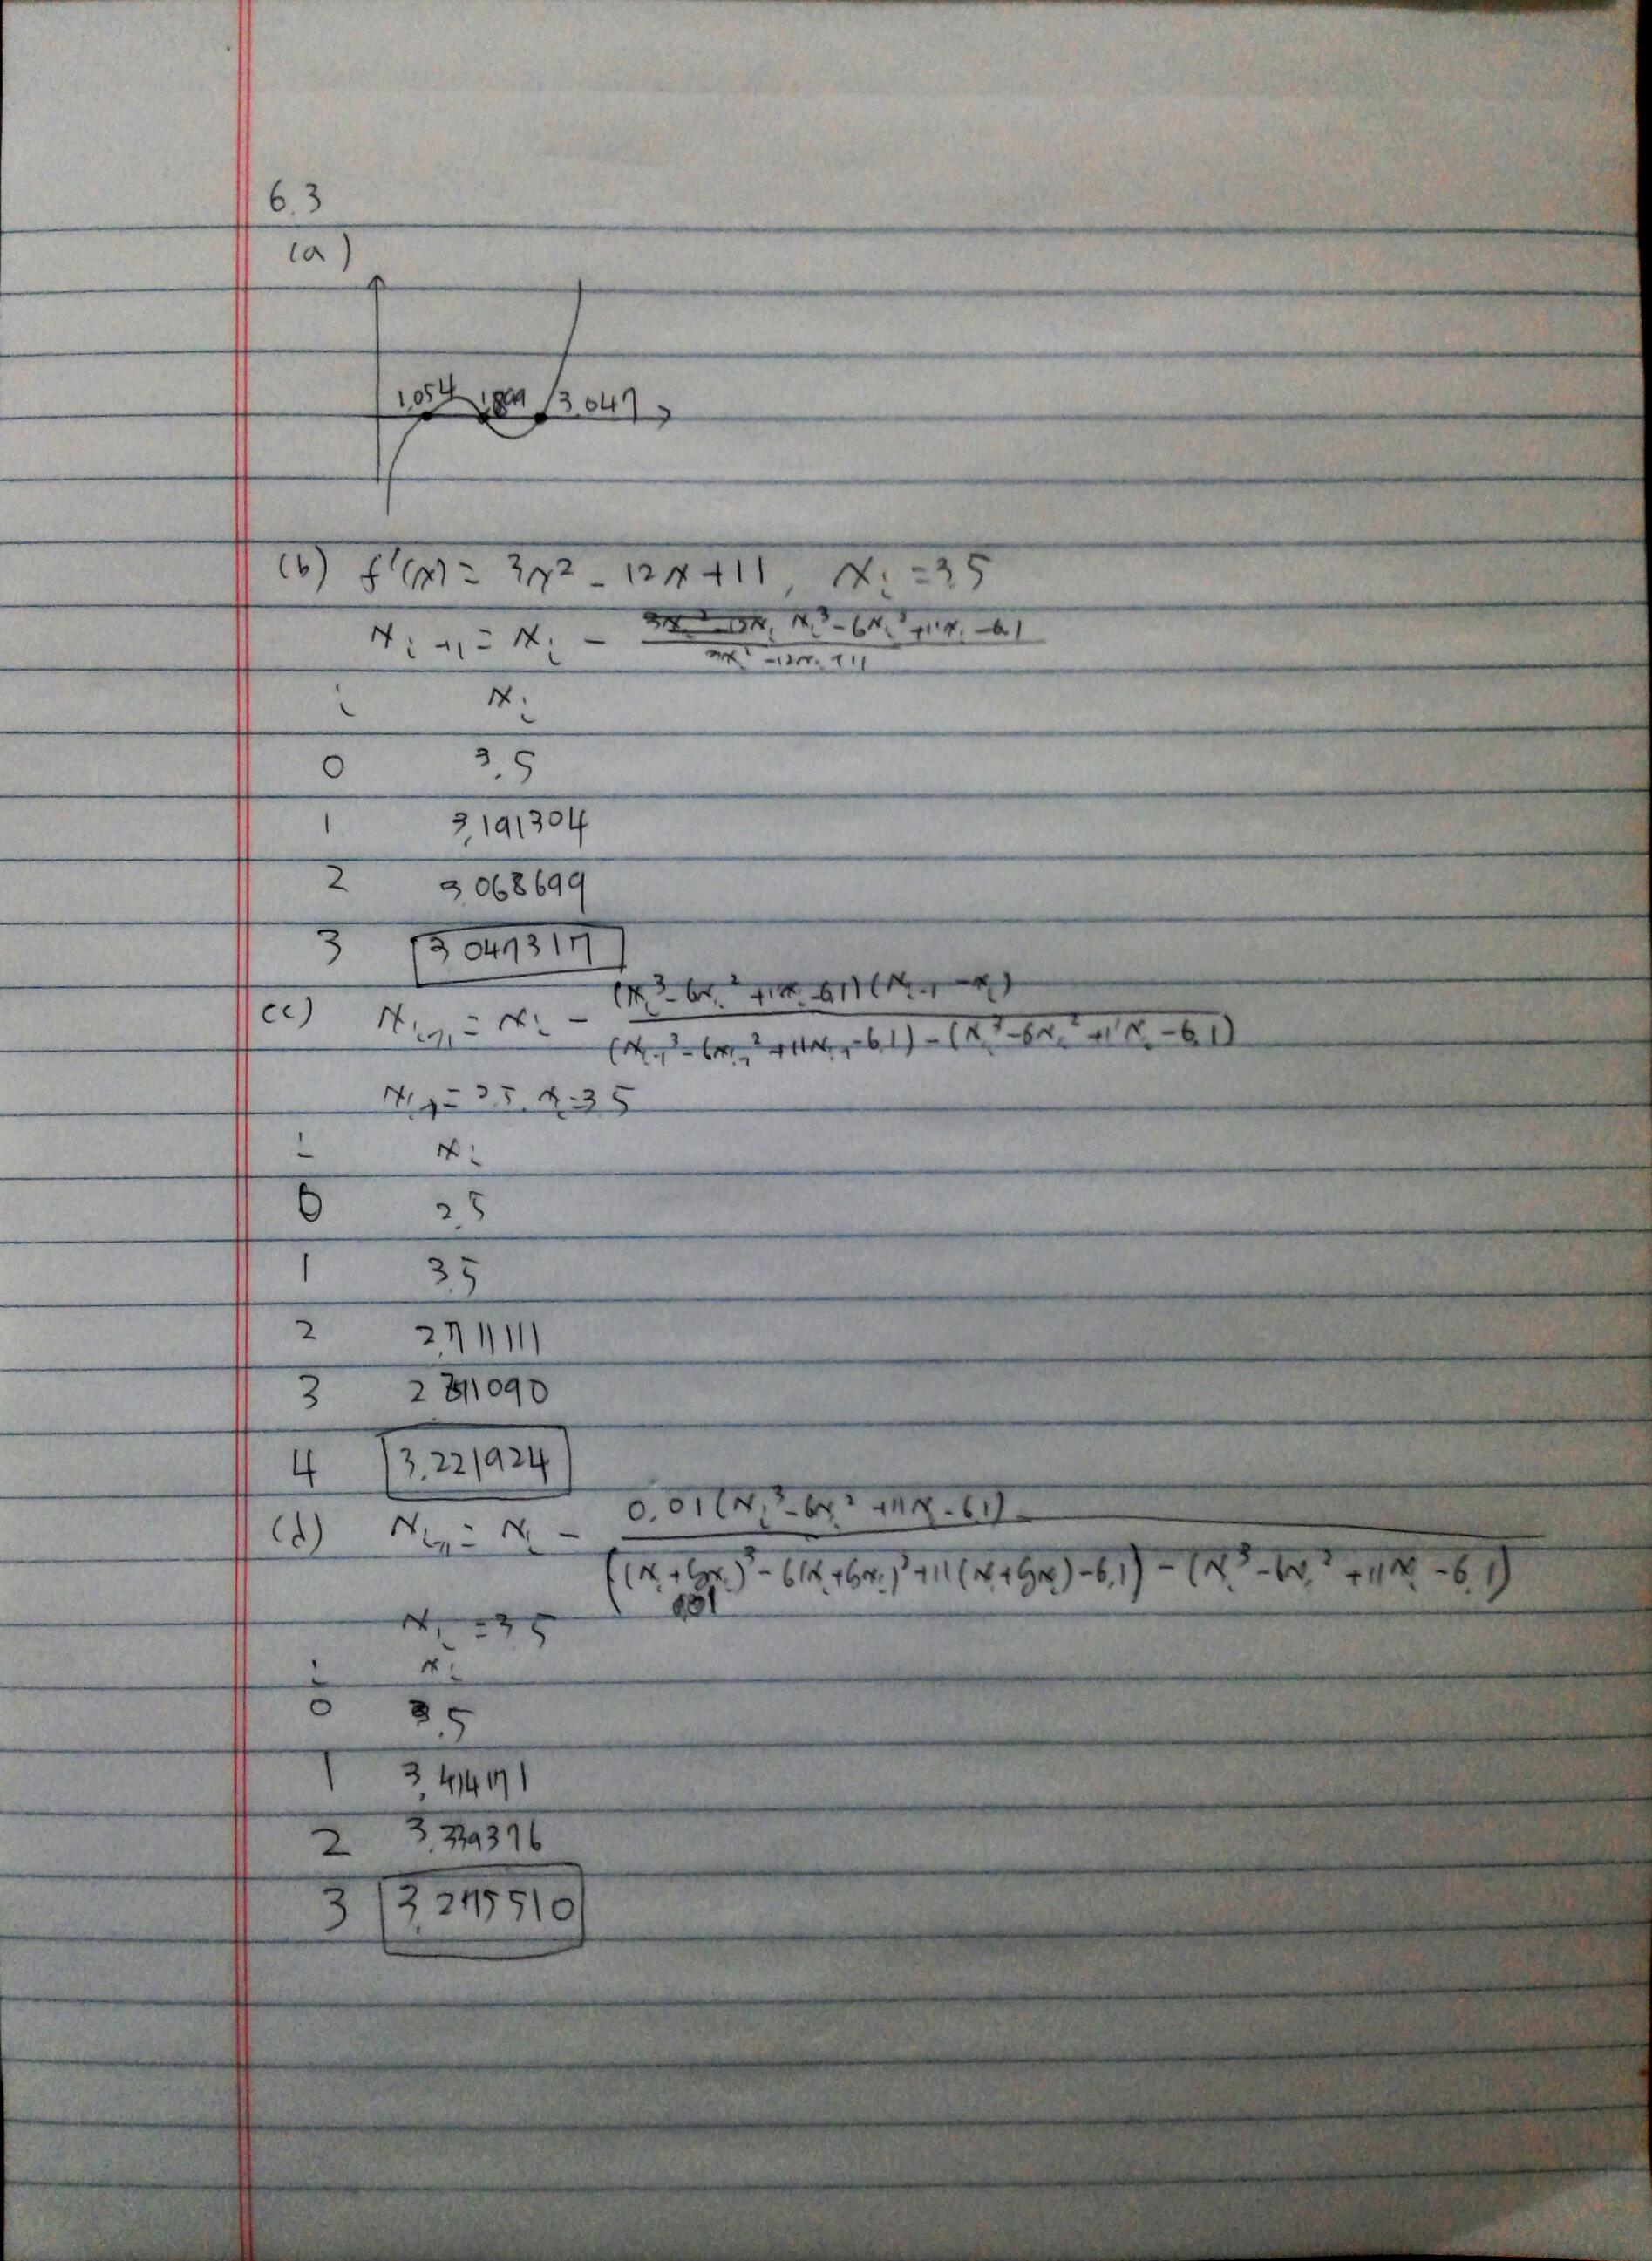 6.3
(a)
1.054 1.899 3.047
(b) f'(x) = 3x² - 12x + 11, xᵢ = 3.5
xᵢ₊₁ = xᵢ - (xᵢ³ - 6xᵢ² + 11xᵢ - 6.1) / (3xᵢ² - 12xᵢ + 11)
i xᵢ
0 3.5
1 3.191304
2 3.068699
3 3.047317
(c) xᵢ₊₁ = xᵢ - (xᵢ³ - 6xᵢ² + 11xᵢ - 6.1)(xᵢ₋₁ - xᵢ) / (xᵢ₋₁³ - 6xᵢ₋₁² + 11xᵢ₋₁ - 6.1) - (xᵢ³ - 6xᵢ² + 11xᵢ - 6.1)
xᵢ₋₁ = 2.5, xᵢ = 3.5
i xᵢ
0 2.5
1 3.5
2 2.711111
3 2.871090
4 3.221924
(d) xᵢ₊₁ = xᵢ - 0.01(xᵢ³ - 6xᵢ² + 11xᵢ - 6.1) / ((xᵢ + δxᵢ)³ - 6(xᵢ + δxᵢ)² + 11(xᵢ + δxᵢ) - 6.1) - (xᵢ³ - 6xᵢ² + 11xᵢ - 6.1)
xᵢ = 3.5
i xᵢ
0 3.5
1 3.414171
2 3.339376
3 3.275510